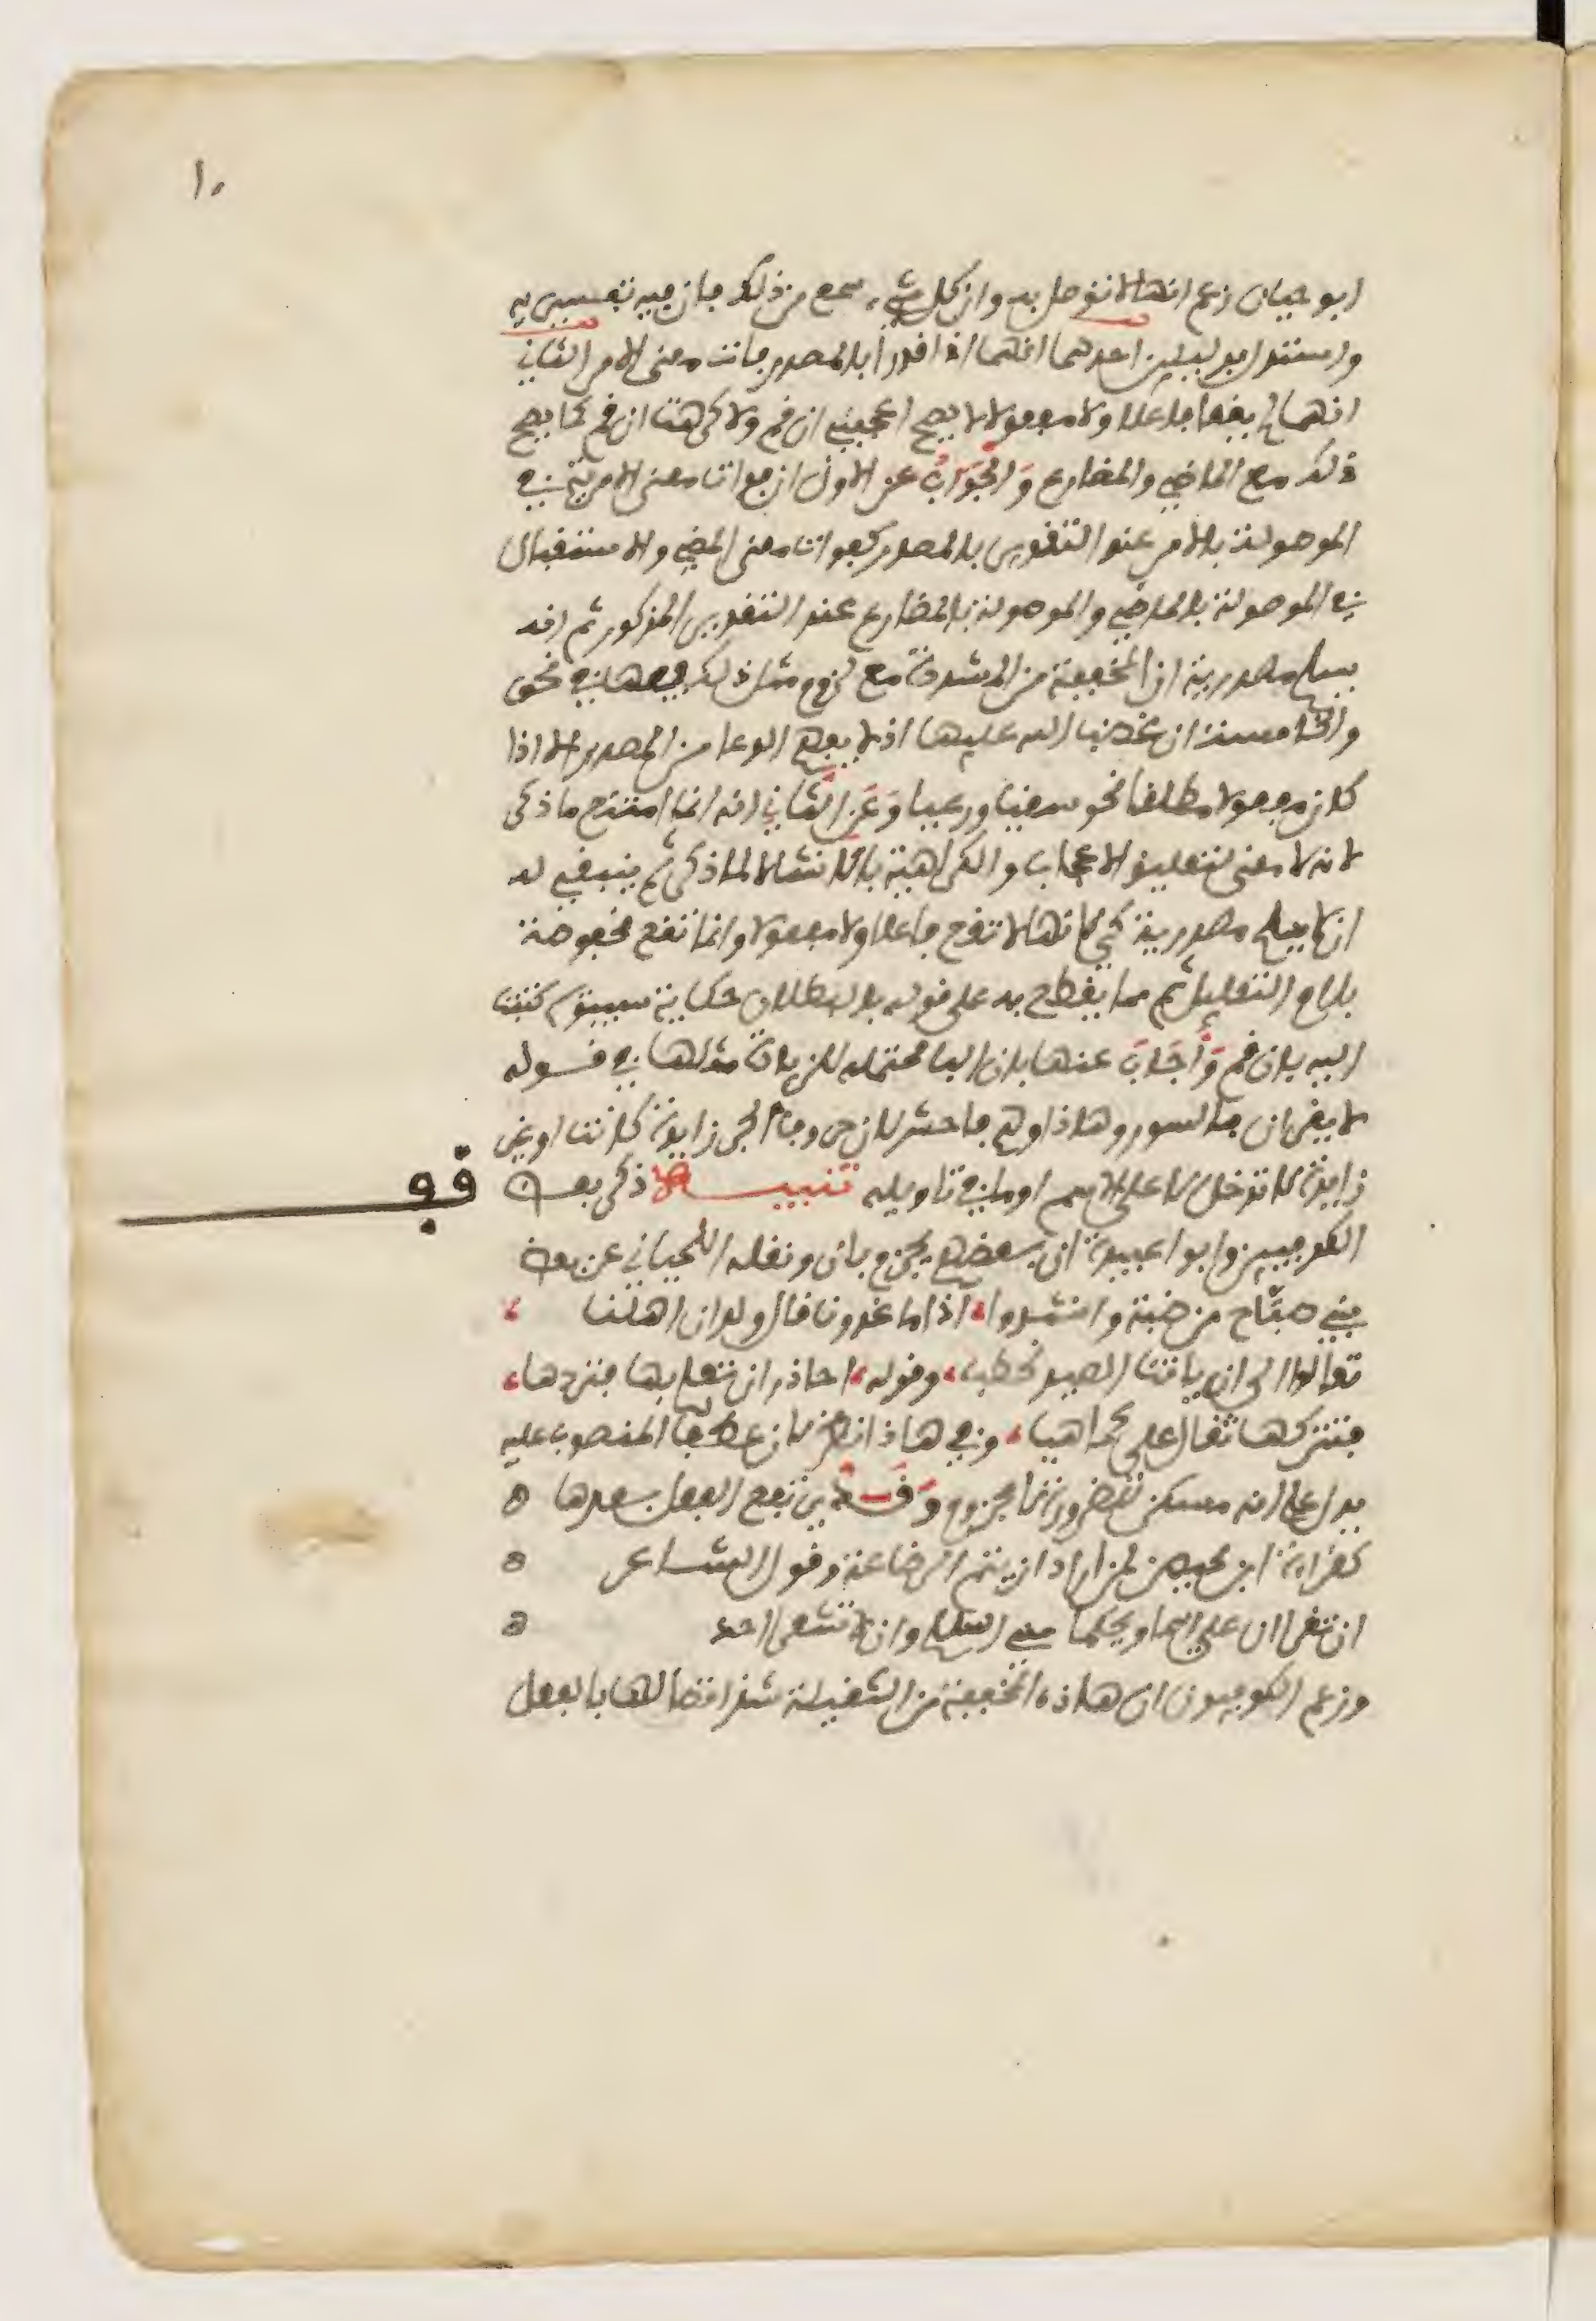 ١٠
ابو حيان زعم انها لا توصل به وان كل شيء سمع من ذلك فان فيه تفسيرية
واستدل بدليلين احدهما انهما اذا قدرا بالمصدر فات معنى الامر الثاني
انهما لم يقعا فاعلا ولا مفعولا لا يصح اعجبني ان قم ولا كرهت ان قم كما يصح
ذلك مع الماضي والمضارع وَالجَوَابُ عن الاول ان فوات معنى الامرية في
الموصولة بالامر عند التقدير بالمصدر كفوات معنى المضي والاستقبال
في الموصولة بالماضي والموصولة بالمضارع عند التقدير المذكور ثم انه
يسلم مصدرية ان المخففة من المشددة مع لزوم مثل ذلك فيها في نحو
والخامسة ان غضب الله عليها اذ لا يفهم الدعا من المصدر الا اذا
كان مفعولا مطلقا نحو سقيا ورعيا وَعَن الثاني انه انما امتنع ما ذكر
لانه لا معنى لتعليق الاعجاب والكراهية بالانشا لا لما ذكر ثم ينبغي له
ان لا يسلم مصدرية كي لانها لا تقع فاعلا ولا مفعولا وانما تقع مخفوضة
بلام التعليل ثم مما يقطع به على قوله بالبطلان حكاية سيبويه كتبت
اليه بان قم وَأَجَابَ عنها بان البا محتمله للزيادة مثلها في قوله
لا يقران بالسور وهاذا وهم فاحش لان حروف الجر زايدة كانت او غير
زايدة لا تدخل الا على الاسم او ما في تاويله تنبيه ذكر بعض
قف
الكوفيين وابو اعبيدة ان بعضهم يجزم بان ونقله اللحياني عن بعض
بني صبّاح من ضبة وانشدوا، اذا ما غدونا قال ولدان اهلنا ،
تعالوا الى ان ياتنا الصيد نحطب، وقوله، احاذر ان تعلم بها فتردها،
فتتركها ثقلا علي كما هيا، وفي هاذا نظر لان عطف المنصوب عليه
يدل على انه مسكن للضرورة لا مجزوم وَقَد يرتفع الفعل بعدها ه
كقراءة ابن محيصن لمن اراد ان يتم الرضاعة وقول الشاعر ه
ان تقران على اسما ويحكما مني السلام وان لا تشعرا احدا ه
وزعم الكوفيون ان هاذه المخففة من الثقيلة شذ اتصالها بالفعل